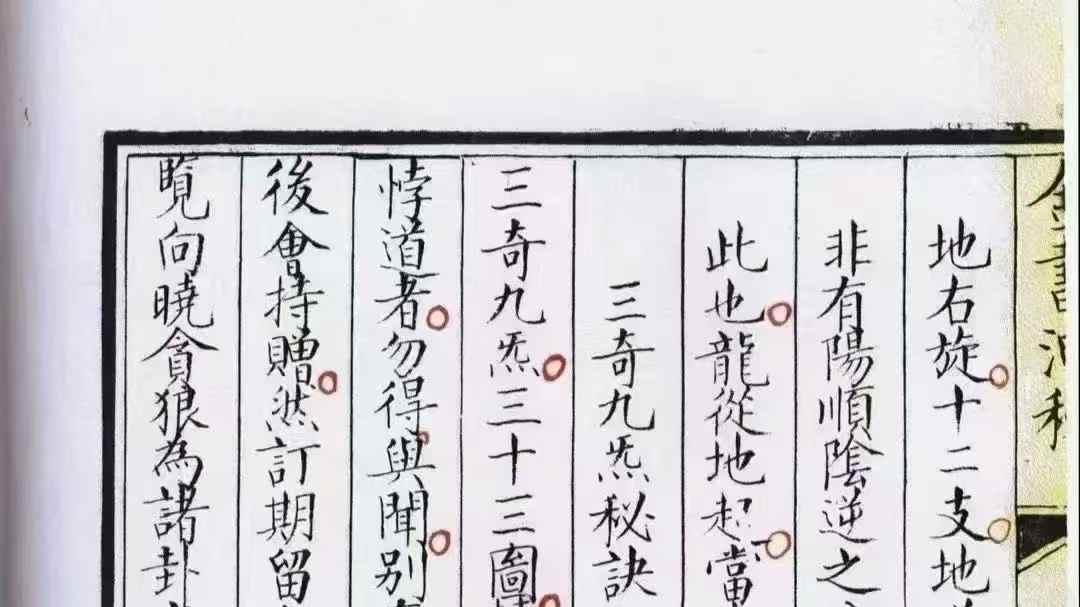 地右旋十二支地
非有陽順陰逆之
此也龍從地起當
三奇九炁秘訣
三奇九炁三十三圖
悖道者勿得與聞別
後會持贈然訂期留
覽向曉貪狼為諸卦